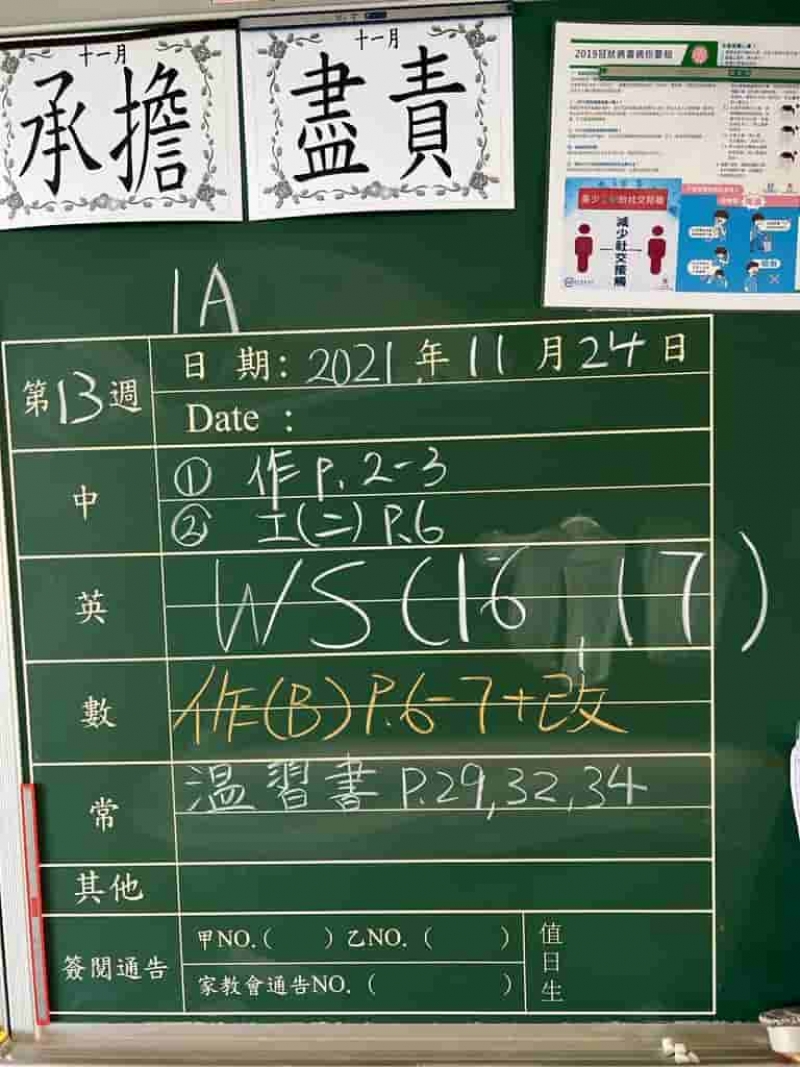 十一月
承擔
十一月
盡責
2019冠狀病毒病你要知
減少社交接觸
1A
第13週
日 期: 2021 年 11 月 24 日
Date :
中
① 作 P. 2-3
② 工(二) P.6
英
WS(16, 17)
數
作(B) P.6-7+改
常
温習書 P.29,32,34
其他
簽閱通告
甲NO.( )乙NO.( )
家教會通告NO.( )
值日生